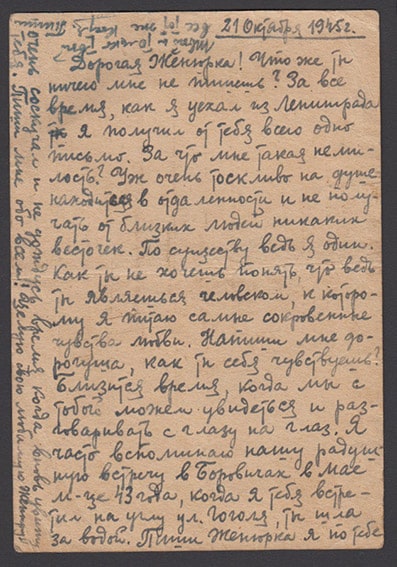 21 Октября 1945г.
Дорогая Женюрка! Что же ты
ничего мне не пишешь? За все
время, как я уехал из Ленинграда
я получил от тебя всего одно
письмо. За что мне такая неми-
лость? Уж очень тоскливо на душе
находиться в отдаленности и не полу-
чать от близких людей никаких
весточек. По существу ведь я один.
Как ты не хочешь понять, что ведь
ты являешься человеком, к которо-
му я питаю самые сокровенные
чувства любви. Напиши мне до-
рогуша, как ты себя чувствуешь?
Близится время, когда мы с
тобой можем увидеться и раз-
говаривать с глазу на глаз. Я
часто вспоминаю нашу радуш-
ную встречу в Боровичах в мае
м-це 43 года, когда я тебя встре-
тил на углу ул. Гоголя, ты шла
за водой. Пиши Женюрка я по тебе
очень соскучал и не дождусь время, когда вновь увижу
тебя. Пиши мне обо всем! Целую свою любимую Женюру!
Твой и только твой
все тот же